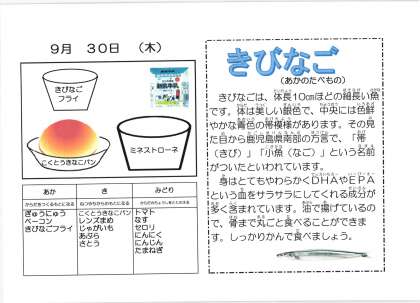 9月 30日 (木)
きびなご
フライ
こくとうきなこパン
ミネストローネ
あか き みどり
からだをつくるもとになる ねつやちからのもとになる からだのちょうしをととのえる
ぎゅうにゅう こくとうきなこパン トマト
ベーコン レンズまめ なす
きびなごフライ じゃがいも セロリ
あぶら にんにく
さとう にんじん
たまねぎ
きびなご
(あかのたべもの)
きびなごは、体長10cmほどの細長い魚
です。体は美しい銀色で、中央には色鮮
やかな青色の帯模様があります。その見
た目から鹿児島県南部の方言で、「帯
(きび)」「小魚(なご)」という名前
がついたといわれています。
身はとてもやわらかくDHAやEPA
という血をサラサラにしてくれる成分が
多く含まれています。油で揚げているの
で、骨まで丸ごと食べることができま
す。しっかりかんで食べましょう。